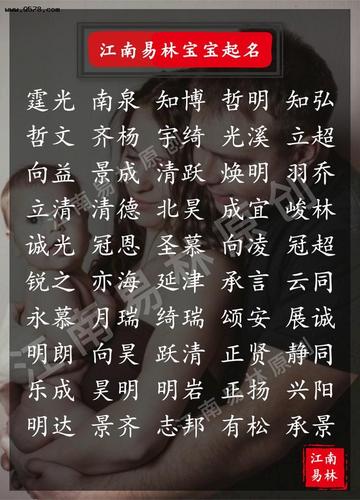 www.Q578.com
江南易林宝宝起名
霆光 南泉 知博 哲明 知弘
哲文 齐杨 宇绮 光溪 立超
向益 景成 清跃 焕明 羽乔
立清 清德 北昊 成宜 峻林
诚光 冠恩 圣慕 向凌 冠超
锐之 亦海 延津 承言 云同
永慕 月瑞 绮瑞 颂安 展诚
明朗 向昊 跃清 正贤 静同
乐成 昊明 明岩 正扬 兴阳
明达 景齐 志邦 有松 承景
江南易林原创
江南易林原创
江南易林原创
江南
易林